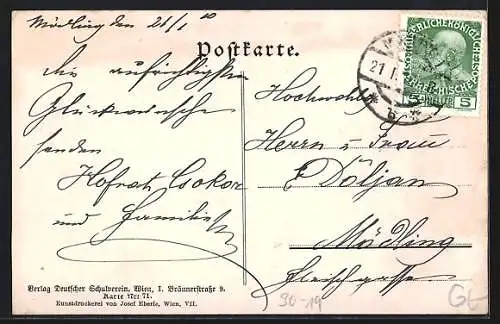 Mödling den 21/1 10
Postkarte.
die aufrichtigsten
Glückwünsche
senden
Hofrat Csokor
und Familie
Hochwohlg.
Herrn u Frau
Döljan
Mödling
Fleischgasse
21.I.
5 HELLER 5
Verlag Deutscher Schulverein, Wien, I. Bräunerstraße 9.
Karte Nr. 71.
Kunstdruckerei von Josef Eberle, Wien, VII.
30-19
G6